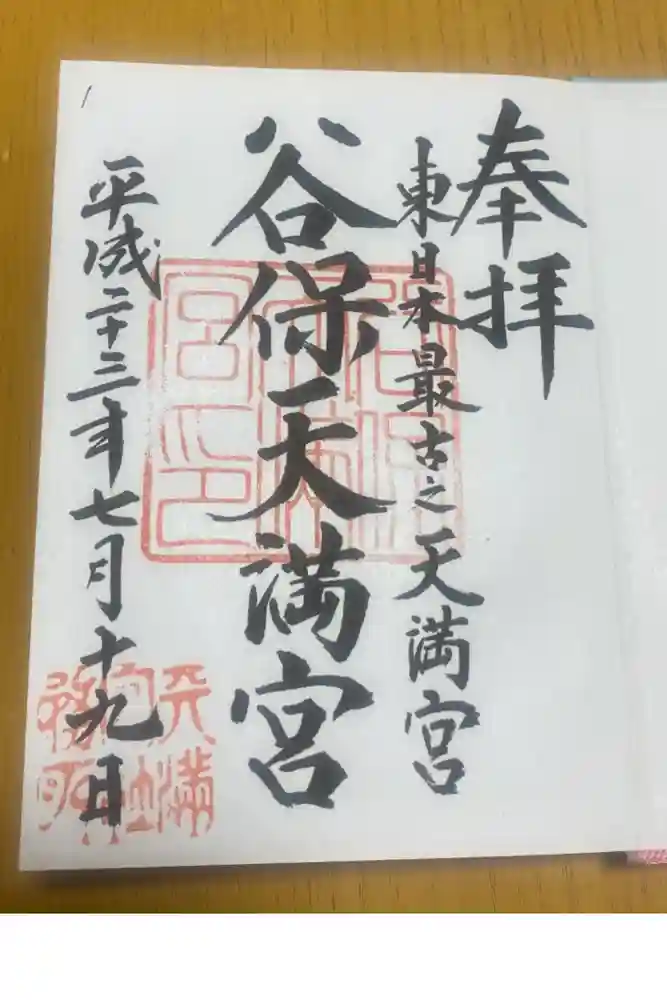 奉拝
東日本最古之天満宮
谷保天満宮
平成二十三年七月十九日
谷保天満宮印
天満宮社務所